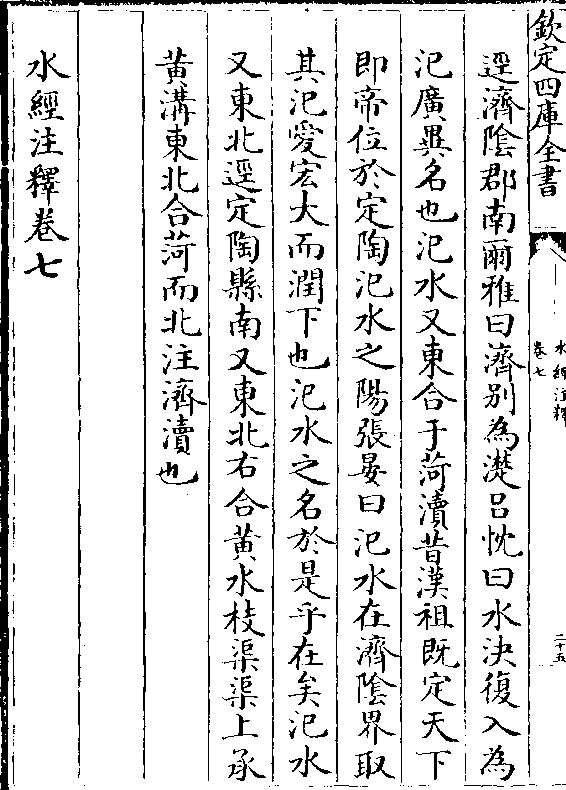 欽定四庫全書
水經注釋
卷七
二十五
逕濟陰郡南爾雅曰濟别為濋吕忱曰水決復入為
汜廣異名也汜水又東合于菏瀆昔漢祖既定天下
即帝位於定陶汜水之陽張晏曰汜水在濟陰界取
其汜愛宏大而潤下也汜水之名於是乎在矣汜水
又東北逕定陶縣南又東北右合黄水枝渠渠上承
黄溝東北合菏而北注濟瀆也
水經注釋卷七